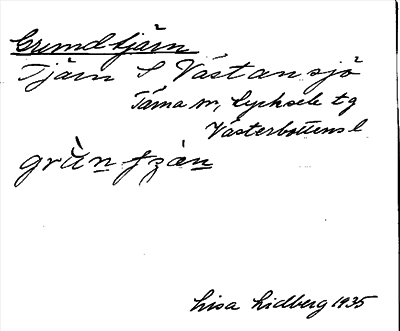 Grundtjärn
Tjärn S Västansjö
Tärna sn, Lycksele tg
Västerbottens l
Lisa Lidberg 1935